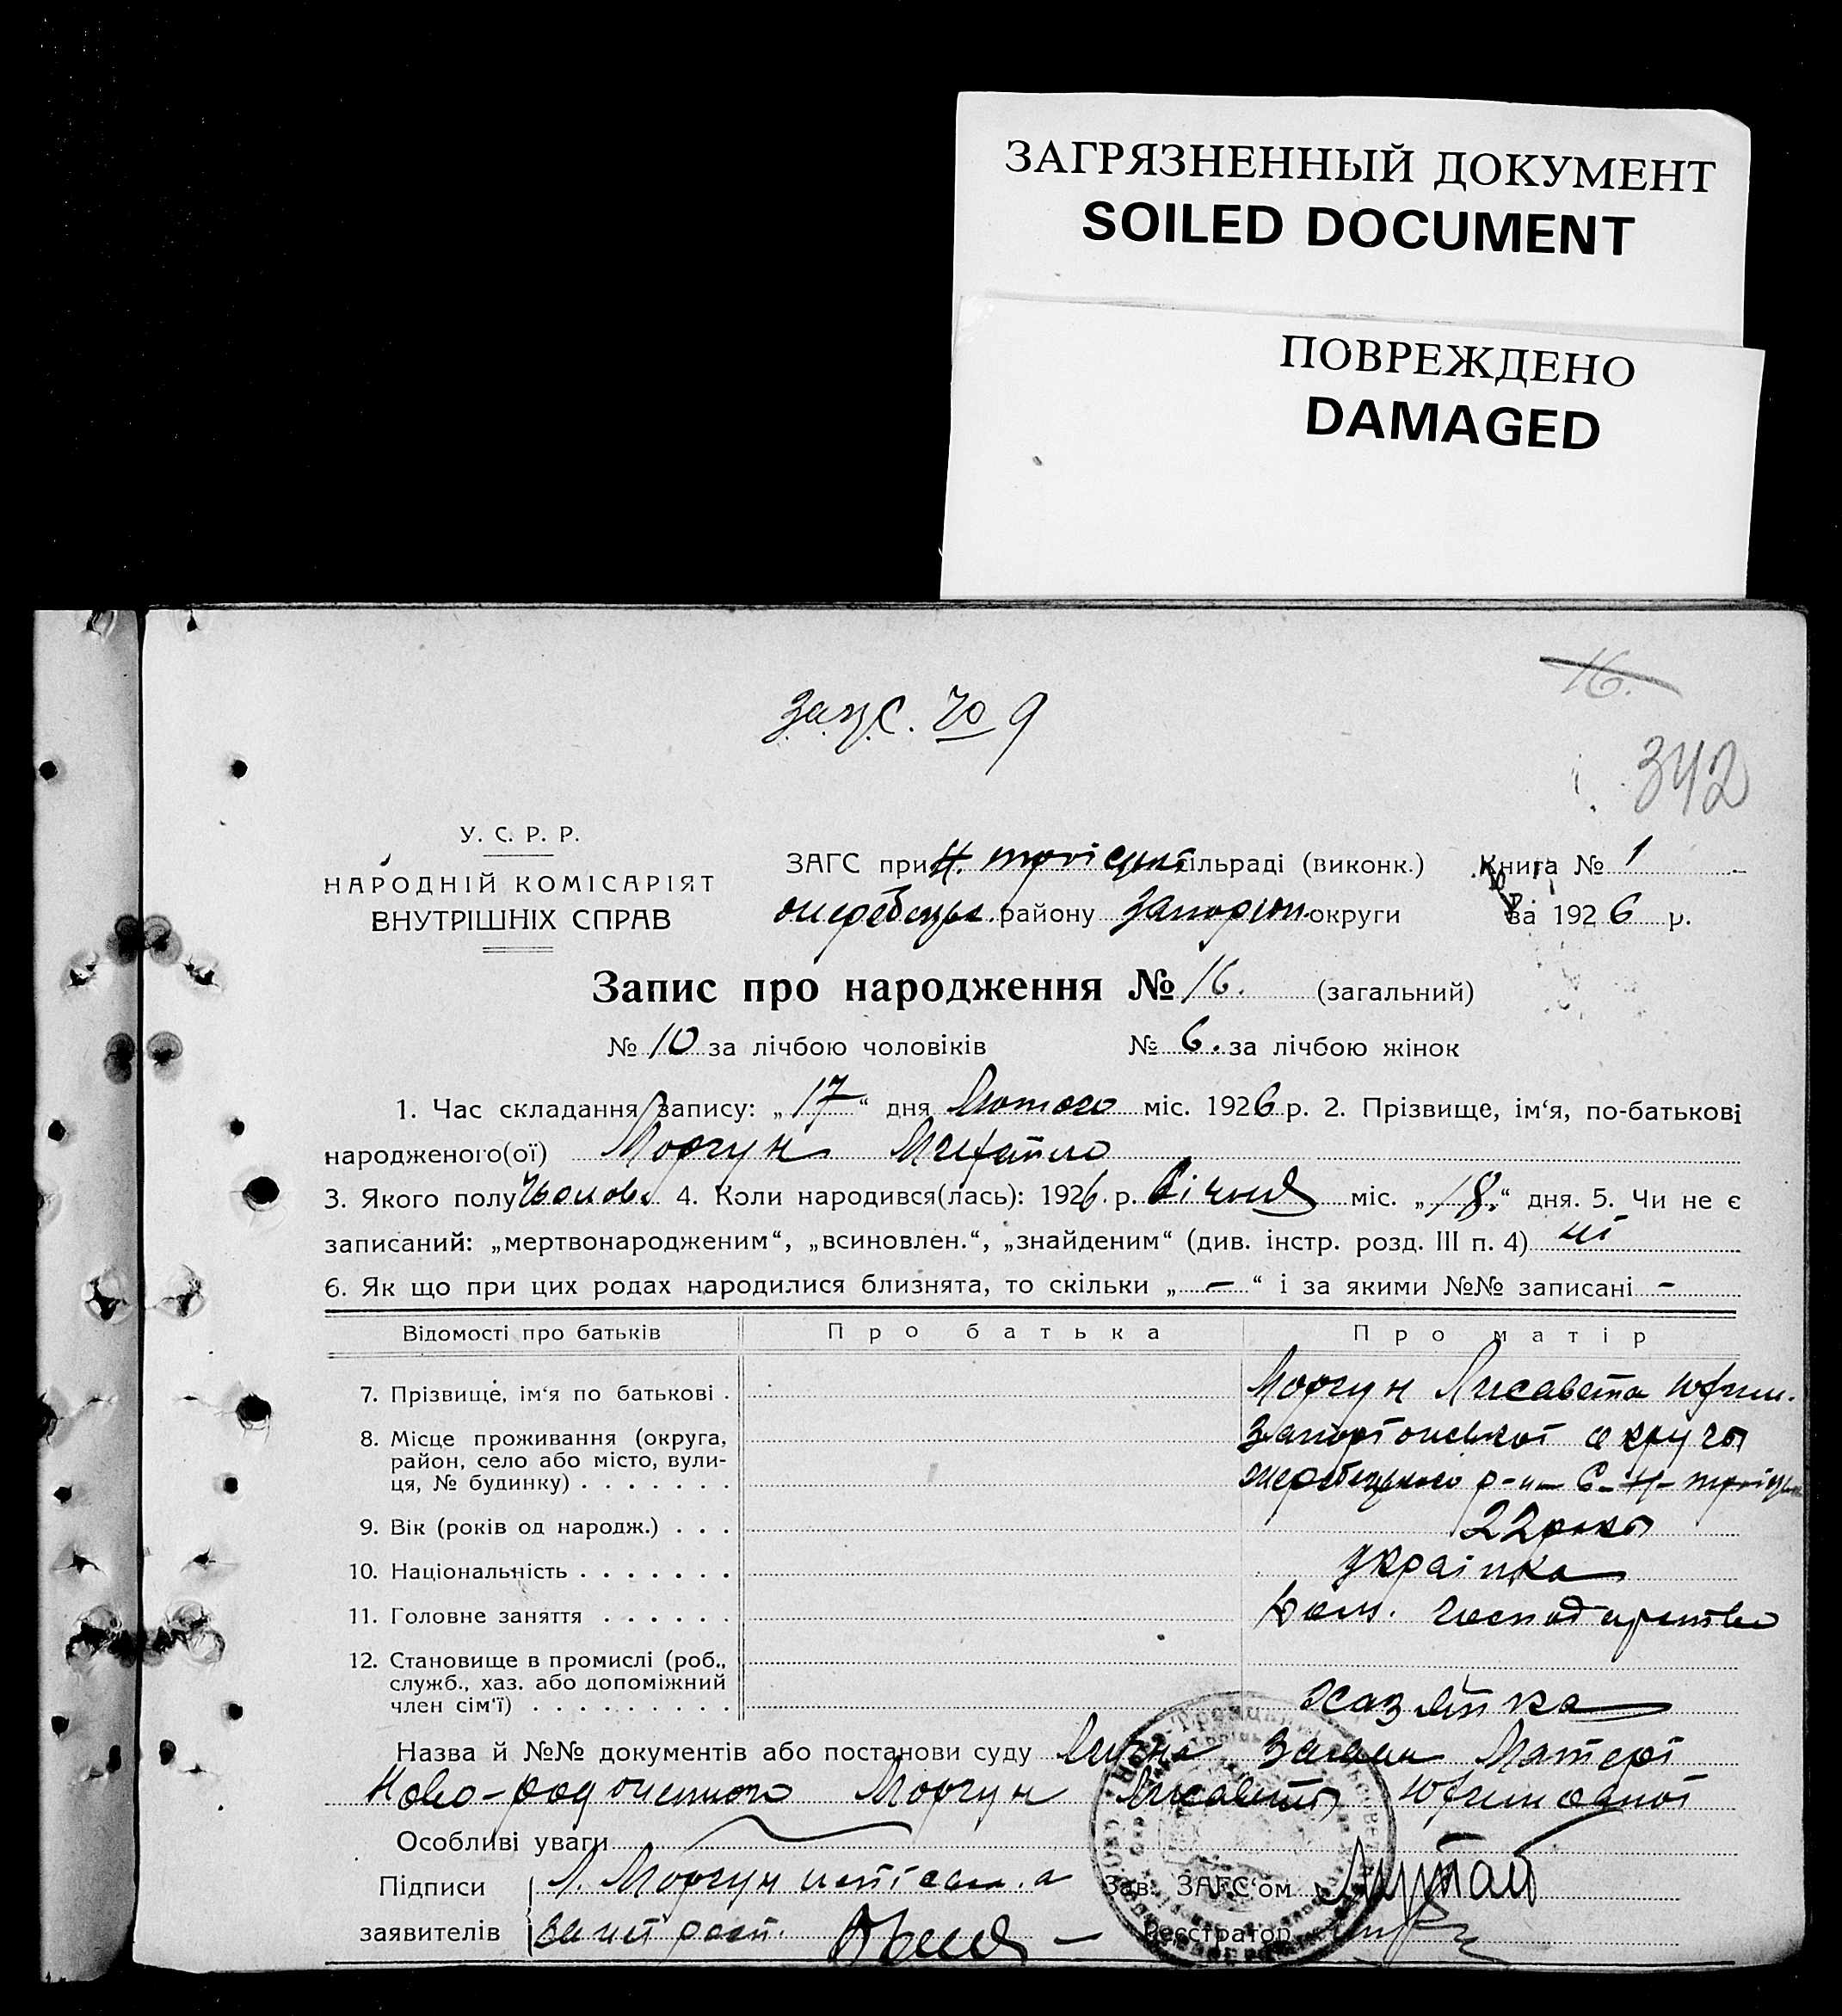 ЗАГРЯЗНЕННЫЙ ДОКУМЕНТ
SOILED DOCUMENT
ПОВРЕЖДЕНО
DAMAGED
16.
9
342
У. С. Р. Р.
НАРОДНІЙ КОМІСАРІЯТ
ВНУТРІШНІХ СПРАВ
ЗАГС при Н. троіцькі сільраді (виконк.) Книга № 1
жеребецьк. району Запоріж. округи За 1926 р.
Запис про народження № 16. (загальний)
№ 10 за лічбою чоловіків № 6. за лічбою жінок
1. Час складання запису: „17“ дня Лютого міс. 1926 р. 2. Прізвище, ім‘я, по-батькові
народженого(ої) Моргун Михайло
3. Якого полу Чолов. 4. Коли народився(лась): 1926. р. Січня міс. „18.“ дня. 5. Чи не є
записаний: „мертвонародженим“, „всиновлен.“, „знайденим“ (див. інстр. розд. III п. 4) ні
6. Як що при цих родах народилися близнята, то скільки „—“ і за якими №№ записані –
Відомості про батьків Про батька Про матір
7. Прізвище, ім‘я по батькові . Моргун Лисавета Юхим.
8. Місце проживання (округа, район, село або місто, вулиця, № будинку) . . . . . . . Запоріжської округи
жеребецького р-н С-Н-троіцьк
9. Вік (років од народж.) . . . 22 роки
10. Національність . . . . . . . Украінка
11. Головне заняття . . . . . . господарство
12. Становище в промислі (роб., служб., хаз. або допоміжний член сім‘ї) . . . . . . . . . хазяйка
Назва й №№ документів або постанови суду заява Матері
Ново-родженого Моргун Лисавети Юхимовної
Особливі уваги
Підписи Л. Моргун Зав. ЗАГС‘ом
заявителів Реєстратор